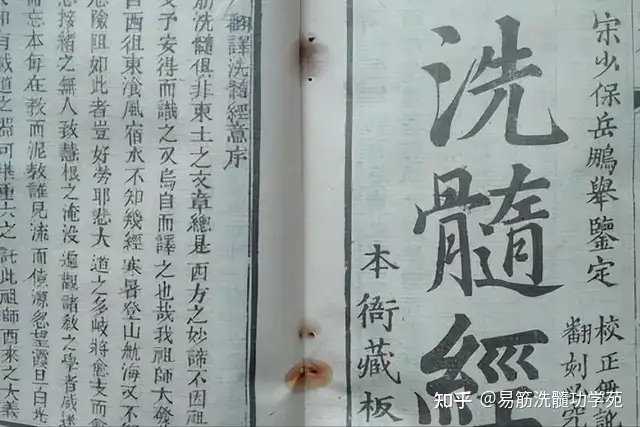 宋少保岳鵬舉鑒定
校正無訛
翻刻必究
洗髓經
本衙藏板
翻譯洗髓經意序
筋洗髓俱非東土之文章總是西方之妙諦不因祖
予安得而識之又烏自而譯之也哉我祖師大發
西徂東飡風宿水不知幾經寒暑登山航海又不
險阻如此者豈好勞耶悲大道之多岐將愈支而愈
接緒之無人致慧根之淹沒遍觀諸教之學者咸逐
而忘本每在教而泥教誰見流而償源忽望霞旦白光
有載道之器可堪重六之託此祖師西來之大義
知乎 @易筋洗髓功学苑